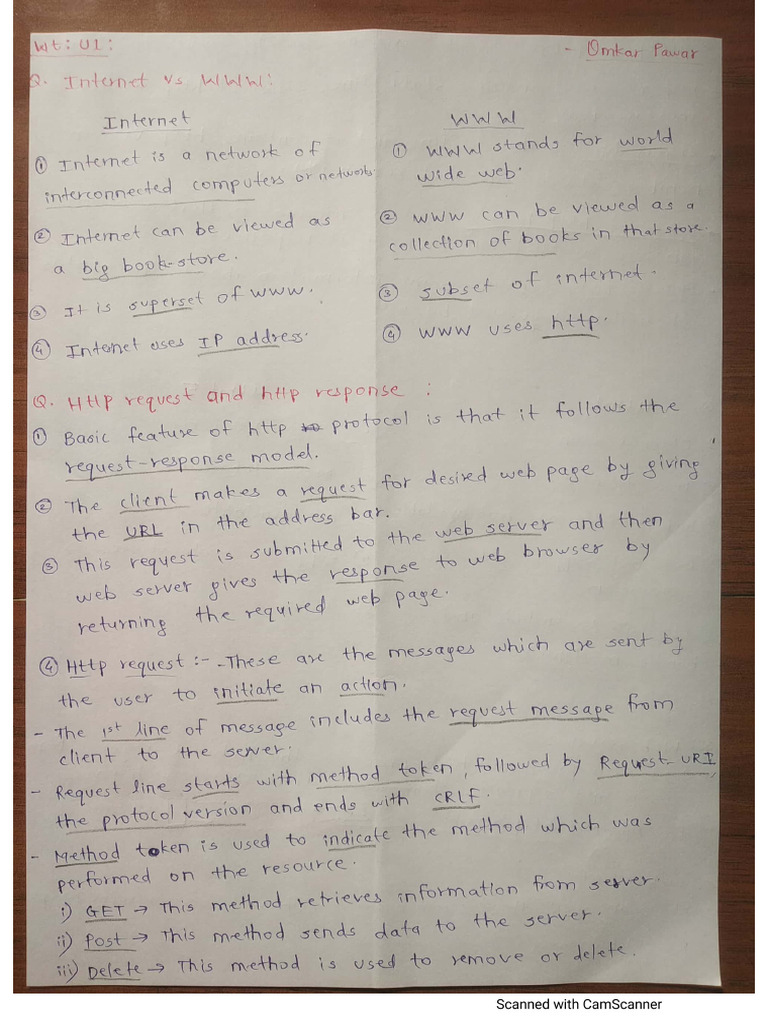 Wt: U1:
- Omkar Pawar
Q. Internet vs WWW:
Internet
① Internet is a network of
interconnected computers or networks.
② Internet can be viewed as
a big book-store.
③ It is superset of www.
④ Internet uses IP address.
WWW
① WWW stands for world
wide web.
② WWW can be viewed as a
collection of books in that store.
③ subset of internet.
④ WWW uses http.
Q. Http request and http response :
① Basic feature of http protocol is that it follows the
request-response model.
② The client makes a request for desired web page by giving
the URL in the address bar.
③ This request is submitted to the web server and then
web server gives the response to web browser by
returning the required web page.
④ Http request :- These are the messages which are sent by
the user to initiate an action.
- The 1st line of message includes the request message from
client to the server.
- Request line starts with method token, followed by Request-URI,
the protocol version and ends with CRLF.
- Method token is used to indicate the method which was
performed on the resource.
i) GET → This method retrieves information from server.
ii) Post → This method sends data to the server.
iii) Delete → This method is used to remove or delete.
Scanned with CamScanner